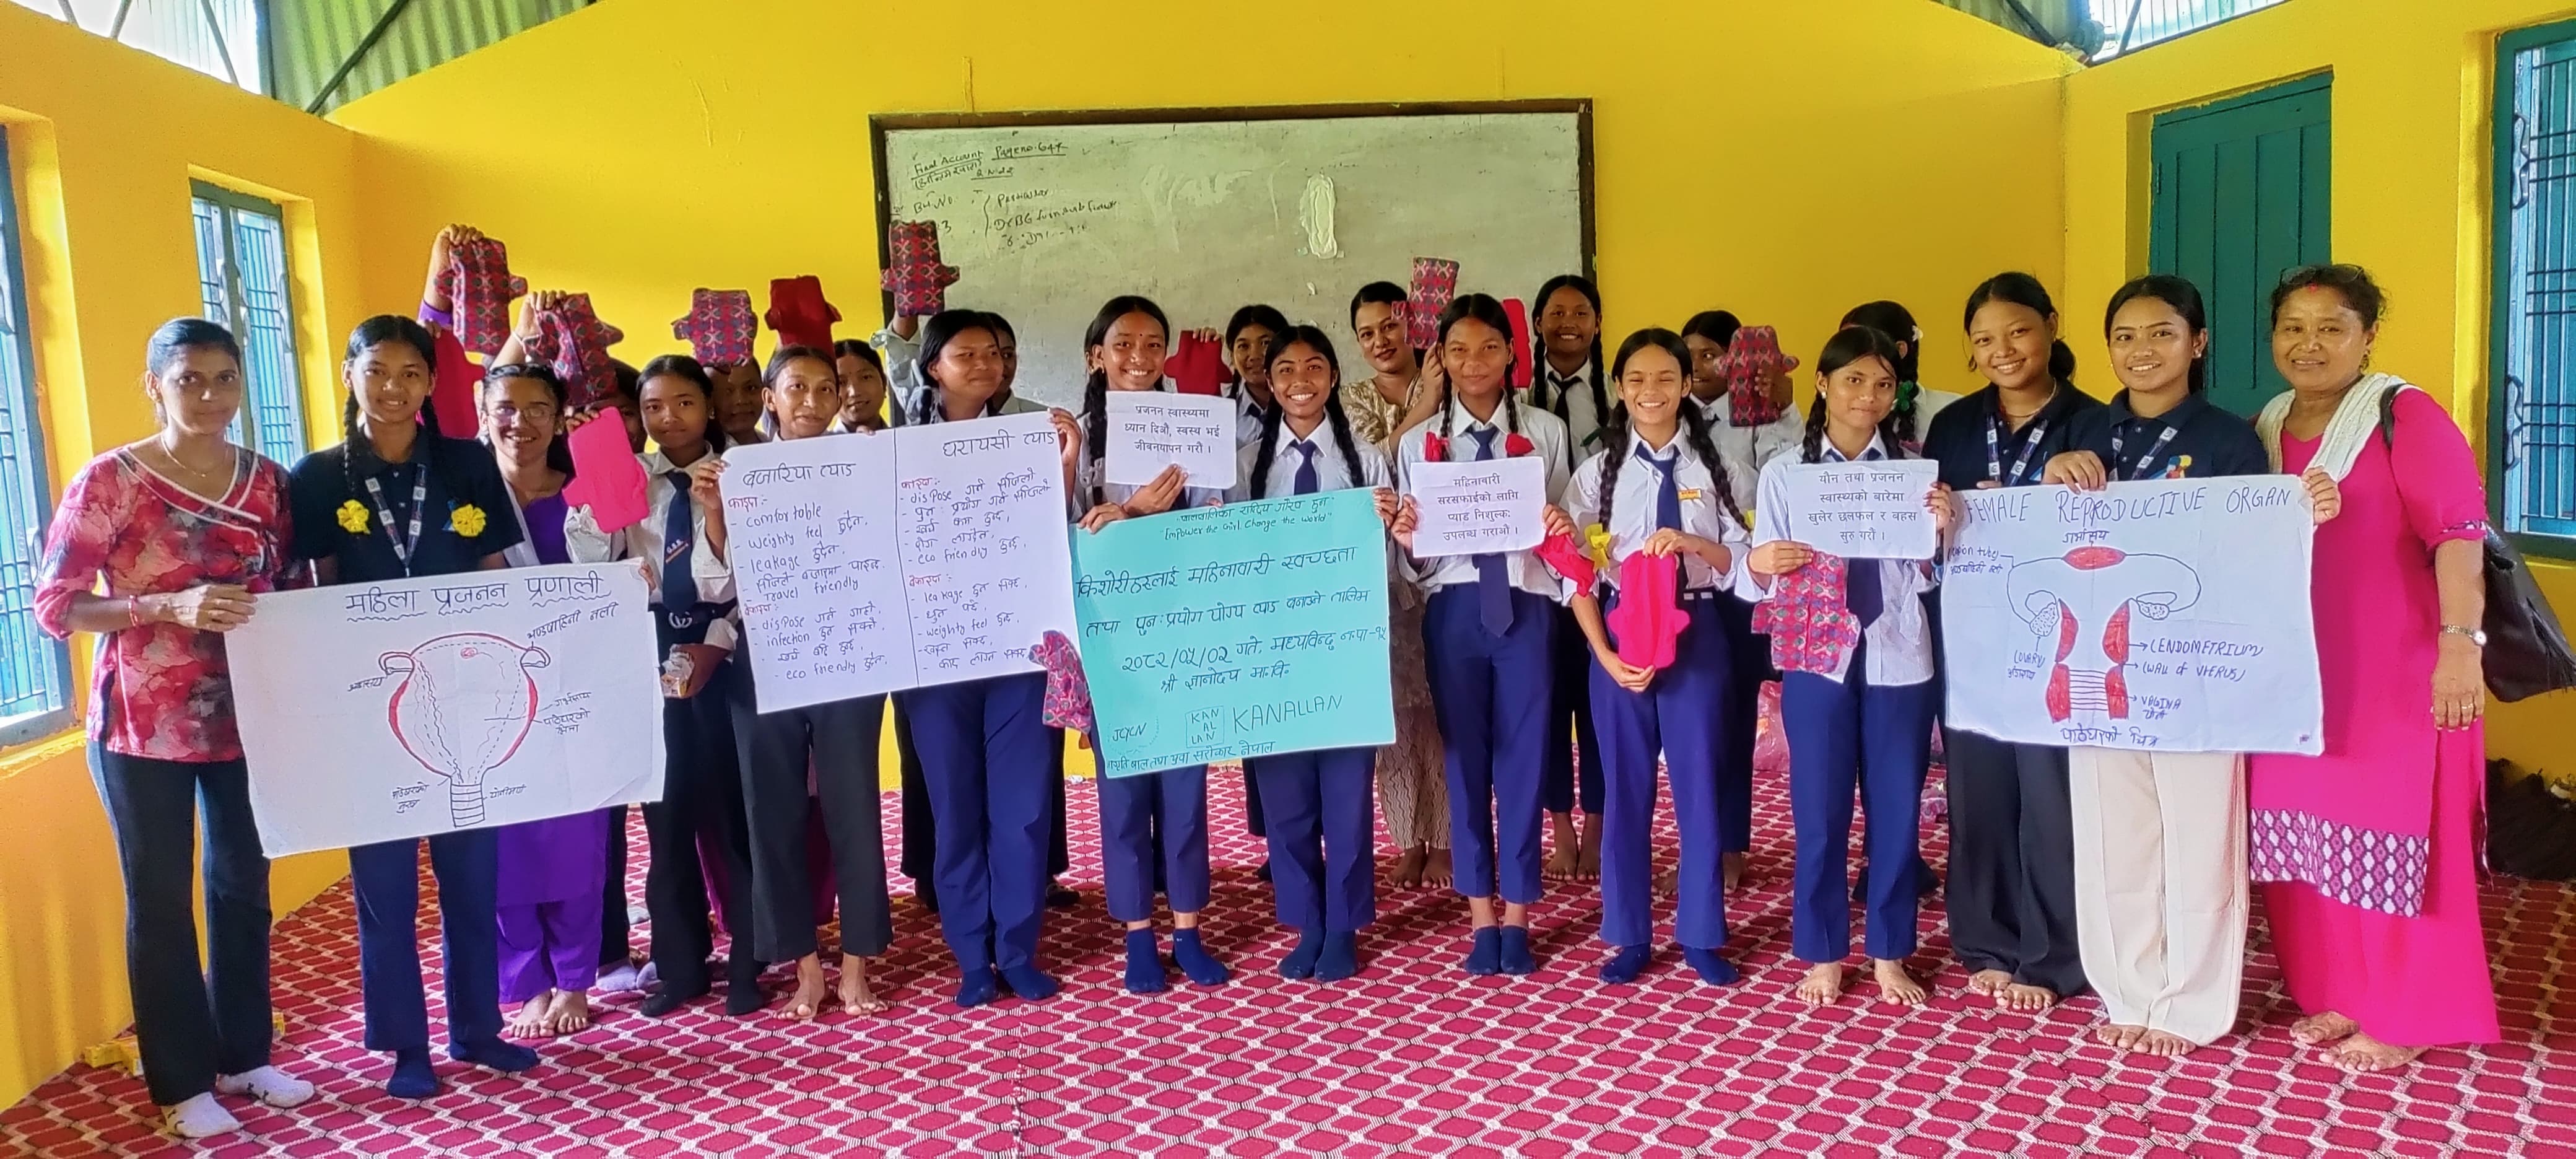 Final Account Page no. 647
महिला प्रजनन प्रणाली
अण्डवाहिनी नली
अण्डासय
गर्भासय
पाठेघरको
पाठेघरको
मुख
योनीमार्ग
बजारिया प्याड
फाइदा:-
- comfortable
- weighty feel हुदैन.
- leakage हुदैन.
- सजिलै बजारमा पाइन्छ.
- travel friendly
बेफाइदा:-
- dispose गर्न गाह्रो.
- infection हुन सक्ने.
- खर्च बढि हुन्छ,
- eco friendly हुदैन.
घरायसी प्याड
फाइदा:-
- dispose गर्न सजिलो
- पुन: प्रयोग गर्न सजिलो
- खर्च कम हुन्छ,
- रोग लाग्दैन.
- eco friendly हुन्छ.
बेफाइदा:-
- leakage हुन सक्छ.
- धुन पर्छ.
- weighty feel हुन्छ.
प्रजनन स्वास्थ्यमा
ध्यान दिऔं, स्वस्थ भई
जीवनयापन गरौं ।
"बालबालिका राष्ट्रिय गौरव हुन"
"Empower the Girl, Change the World"
किशोरीहरुलाई महिनावारी स्वच्छता
तथा पुन: प्रयोग योग्य प्याड बनाउने तालिम
२०८२/०५/०२ गते, मध्यविन्दु न.पा-१५
श्री ज्ञानोदय मा.वि.
JCYCN
KAN
AL
LAN
KANALLAN
जागृति बाल तथा युवा सरोकार नेपाल
महिनावारी
सरसफाईको लागि
प्याड निशुल्क
उपलब्ध गराऔं ।
यौन तथा प्रजनन
स्वास्थ्यको बारेमा
खुलेर छलफल र बहस
सुरु गरौं ।
FEMALE REPRODUCTIVE ORGAN
गर्भासय
OVARY
अण्डासय
ENDOMETRIUM
(WALL of UTERUS)
VAGINA
योनी
पाठेघरको चित्र